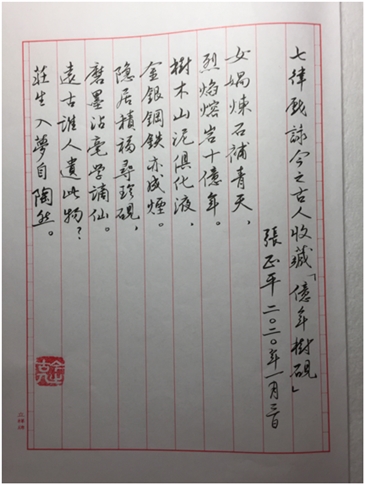 七律戲詠今之古人收藏「億年樹硯」
張正平 二〇二〇年一月三日
女媧煉石補青天、
烈焰熔岩十億年。
樹木山泥俱化液、
金銀鋼鐵亦成煙。
隐居積福尋珍硯、
磨墨沾毫学謫仙。
遠古誰人遺此物？
莊生入夢自陶然。